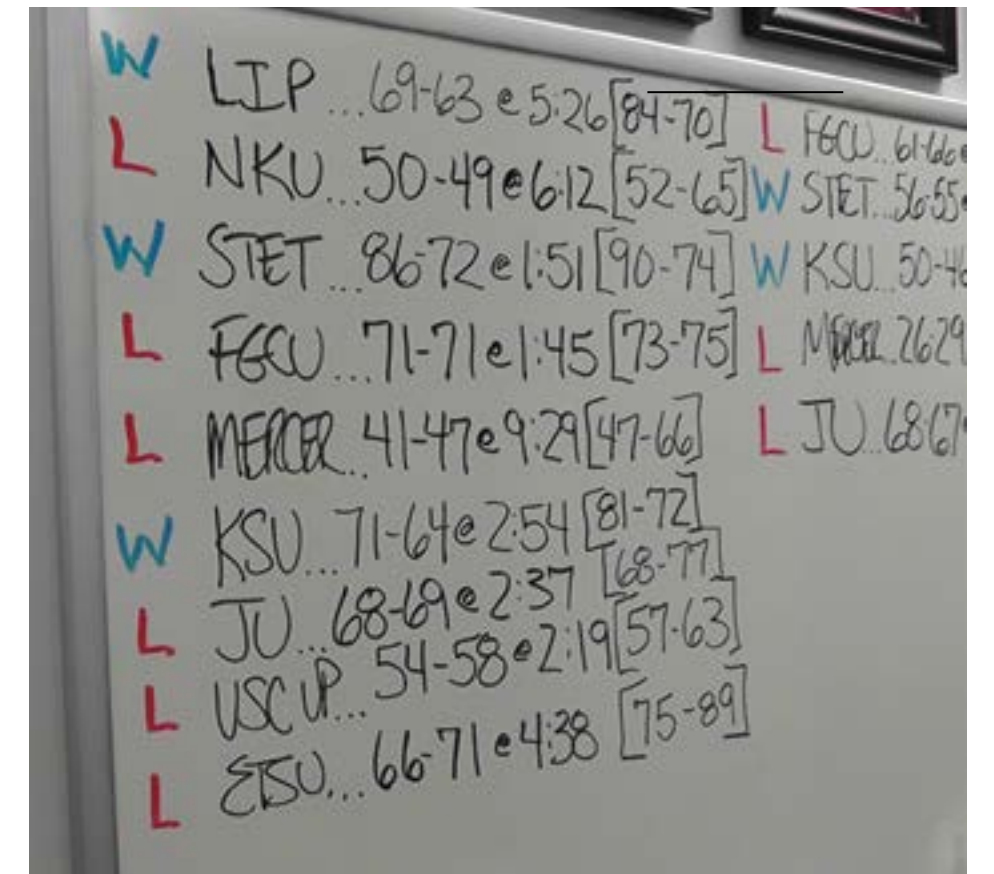 W LIP...69-63 @ 5:26 [84-70]
L NKU...50-49 @ 6:12 [52-65]
W STET...86-72 @ 1:51 [90-74]
L FGCU...71-71 @ 1:45 [73-75]
L MERCER...41-47 @ 9:29 [47-66]
W KSU...71-64 @ 2:54 [81-72]
L JU...68-69 @ 2:37 [68-77]
L USC UP...54-58 @ 2:19 [57-63]
L ETSU...66-71 @ 4:38 [75-89]
L FGCU...61-66 @
W STET...56-55 @
W KSU...50-46
L MERCER...26-29
L JU...68-67